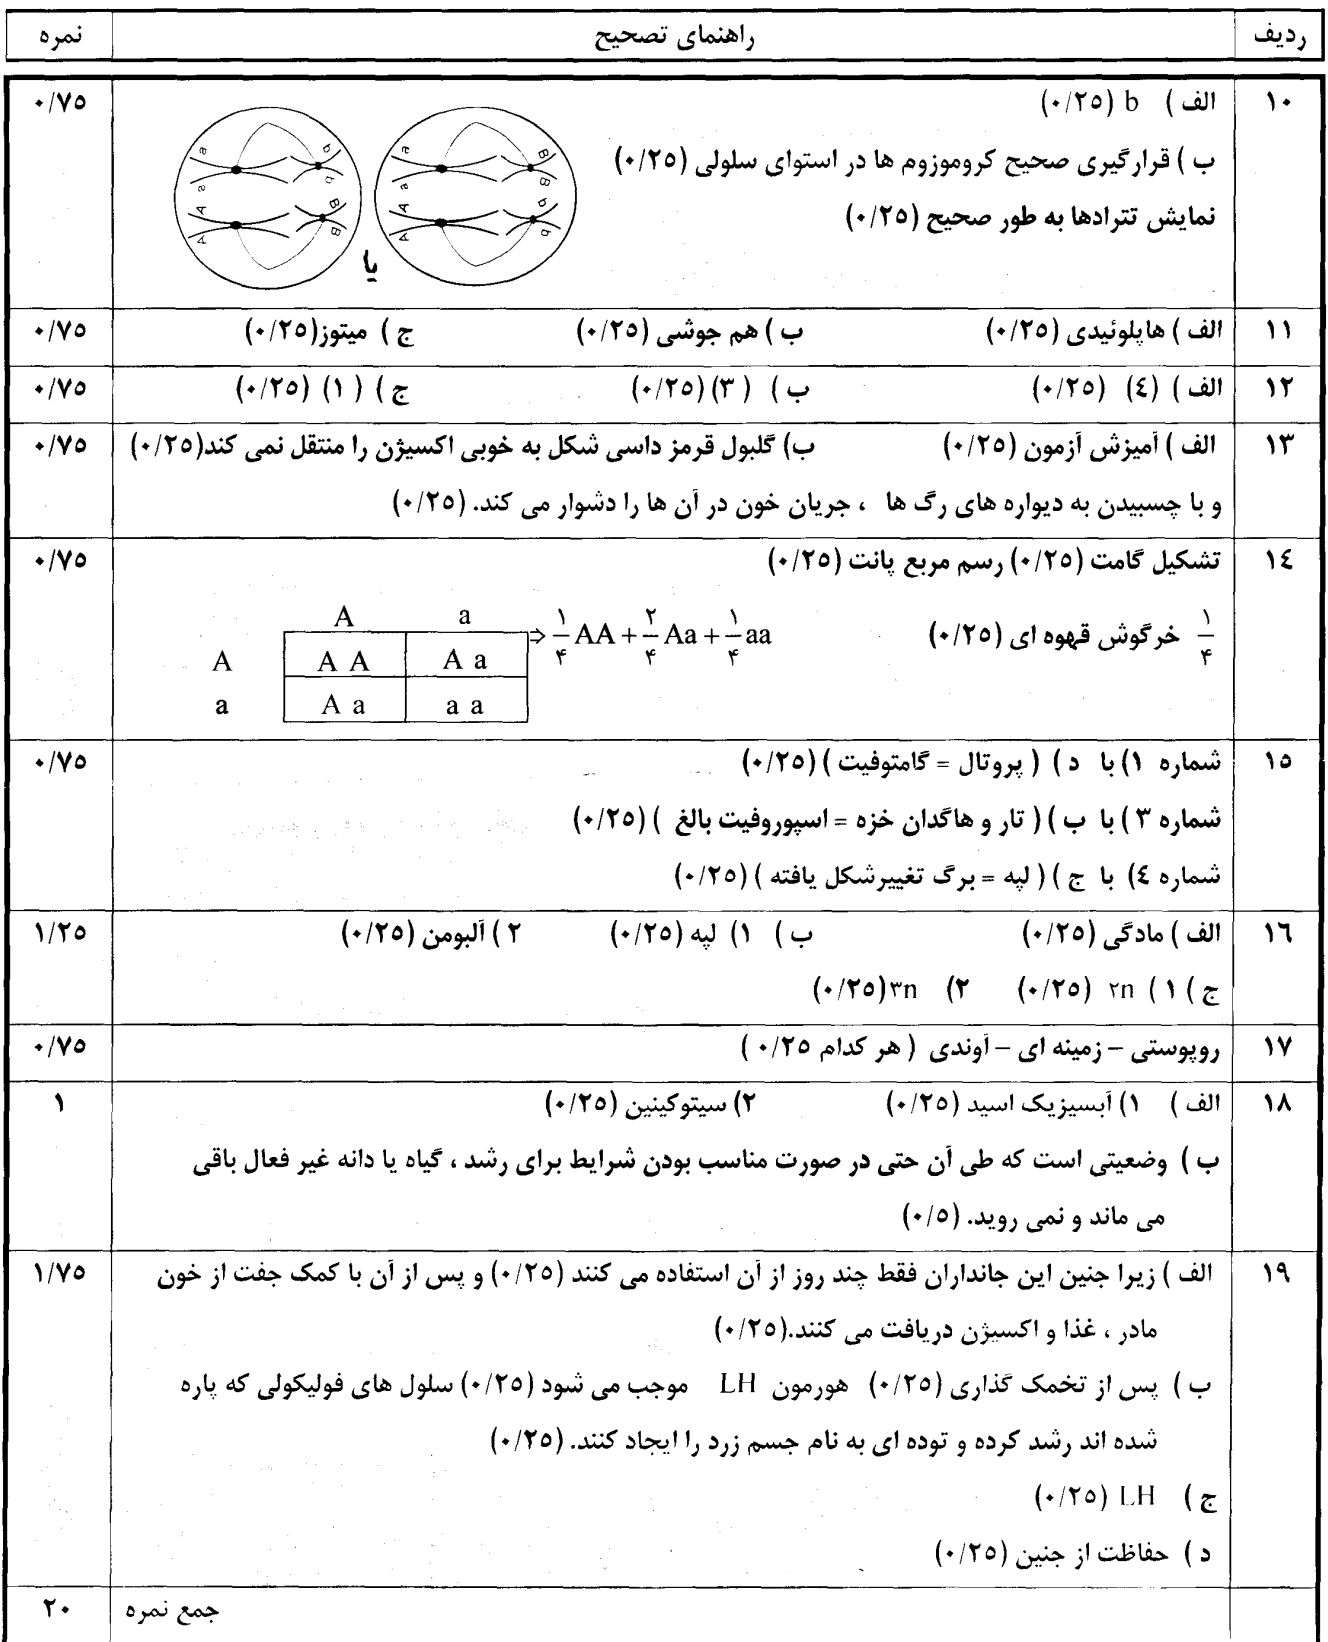 ردیف راهنمای تصحیح نمره
۱۰ الف ) b (۰/۲۵) ۰/۷۵
ب ) قرارگیری صحیح کروموزوم ها در استوای سلولی (۰/۲۵)
نمایش تترادها به طور صحیح (۰/۲۵)
a a b b A A B B یا a a B B A A b b
۱۱ الف ) هاپلوئیدی (۰/۲۵) ب ) هم جوشی (۰/۲۵) ج ) میتوز(۰/۲۵) ۰/۷۵
۱۲ الف ) (٤) (۰/۲۵) ب ) (۳) (۰/۲۵) ج ) (۱) (۰/۲۵) ۰/۷۵
۱۳ الف ) آمیزش آزمون (۰/۲۵) ب) گلبول قرمز داسی شکل به خوبی اکسیژن را منتقل نمی کند(۰/۲۵) ۰/۷۵
و با چسبیدن به دیواره های رگ ها ، جریان خون در آن ها را دشوار می کند. (۰/۲۵)
۱٤ تشکیل گامت (۰/۲۵) رسم مربع پانت (۰/۲۵) ۰/۷۵
۱/۴ خرگوش قهوه ای (۰/۲۵) ⇒ ۱/۴ AA + ۲/۴ Aa + ۱/۴ aa
A a
A A A A a
a A a a a
۱۵ شماره ۱) با د ) ( پروتال = گامتوفیت ) (۰/۲۵) ۰/۷۵
شماره ۳ ) با ب ) ( تار و هاگدان خزه = اسپوروفیت بالغ ) (۰/۲۵)
شماره ٤) با ج ) ( لپه = برگ تغییرشکل یافته ) (۰/۲۵)
۱٦ الف ) مادگی (۰/۲۵) ب ) ۱) لپه (۰/۲۵) ۲ ) آلبومن (۰/۲۵) ۱/۲۵
ج ) ۱ ) ۲n (۰/۲۵) ۲) ۳n(۰/۲۵)
۱۷ روپوستی – زمینه ای – آوندی ( هر کدام ۰/۲۵ ) ۰/۷۵
۱۸ الف ) ۱) آبسیزیک اسید (۰/۲۵) ۲) سیتوکینین (۰/۲۵) ۱
ب ) وضعیتی است که طی آن حتی در صورت مناسب بودن شرایط برای رشد ، گیاه یا دانه غیر فعال باقی
می ماند و نمی روید. (۰/۵)
۱۹ الف ) زیرا جنین این جانداران فقط چند روز از آن استفاده می کنند (۰/۲۵) و پس از آن با کمک جفت از خون ۱/۷۵
مادر ، غذا و اکسیژن دریافت می کنند.(۰/۲۵)
ب ) پس از تخمک گذاری (۰/۲۵) هورمون LH موجب می شود (۰/۲۵) سلول های فولیکولی که پاره
شده اند رشد کرده و توده ای به نام جسم زرد را ایجاد کنند. (۰/۲۵)
ج ) LH (۰/۲۵)
د ) حفاظت از جنین (۰/۲۵)
جمع نمره ۲۰